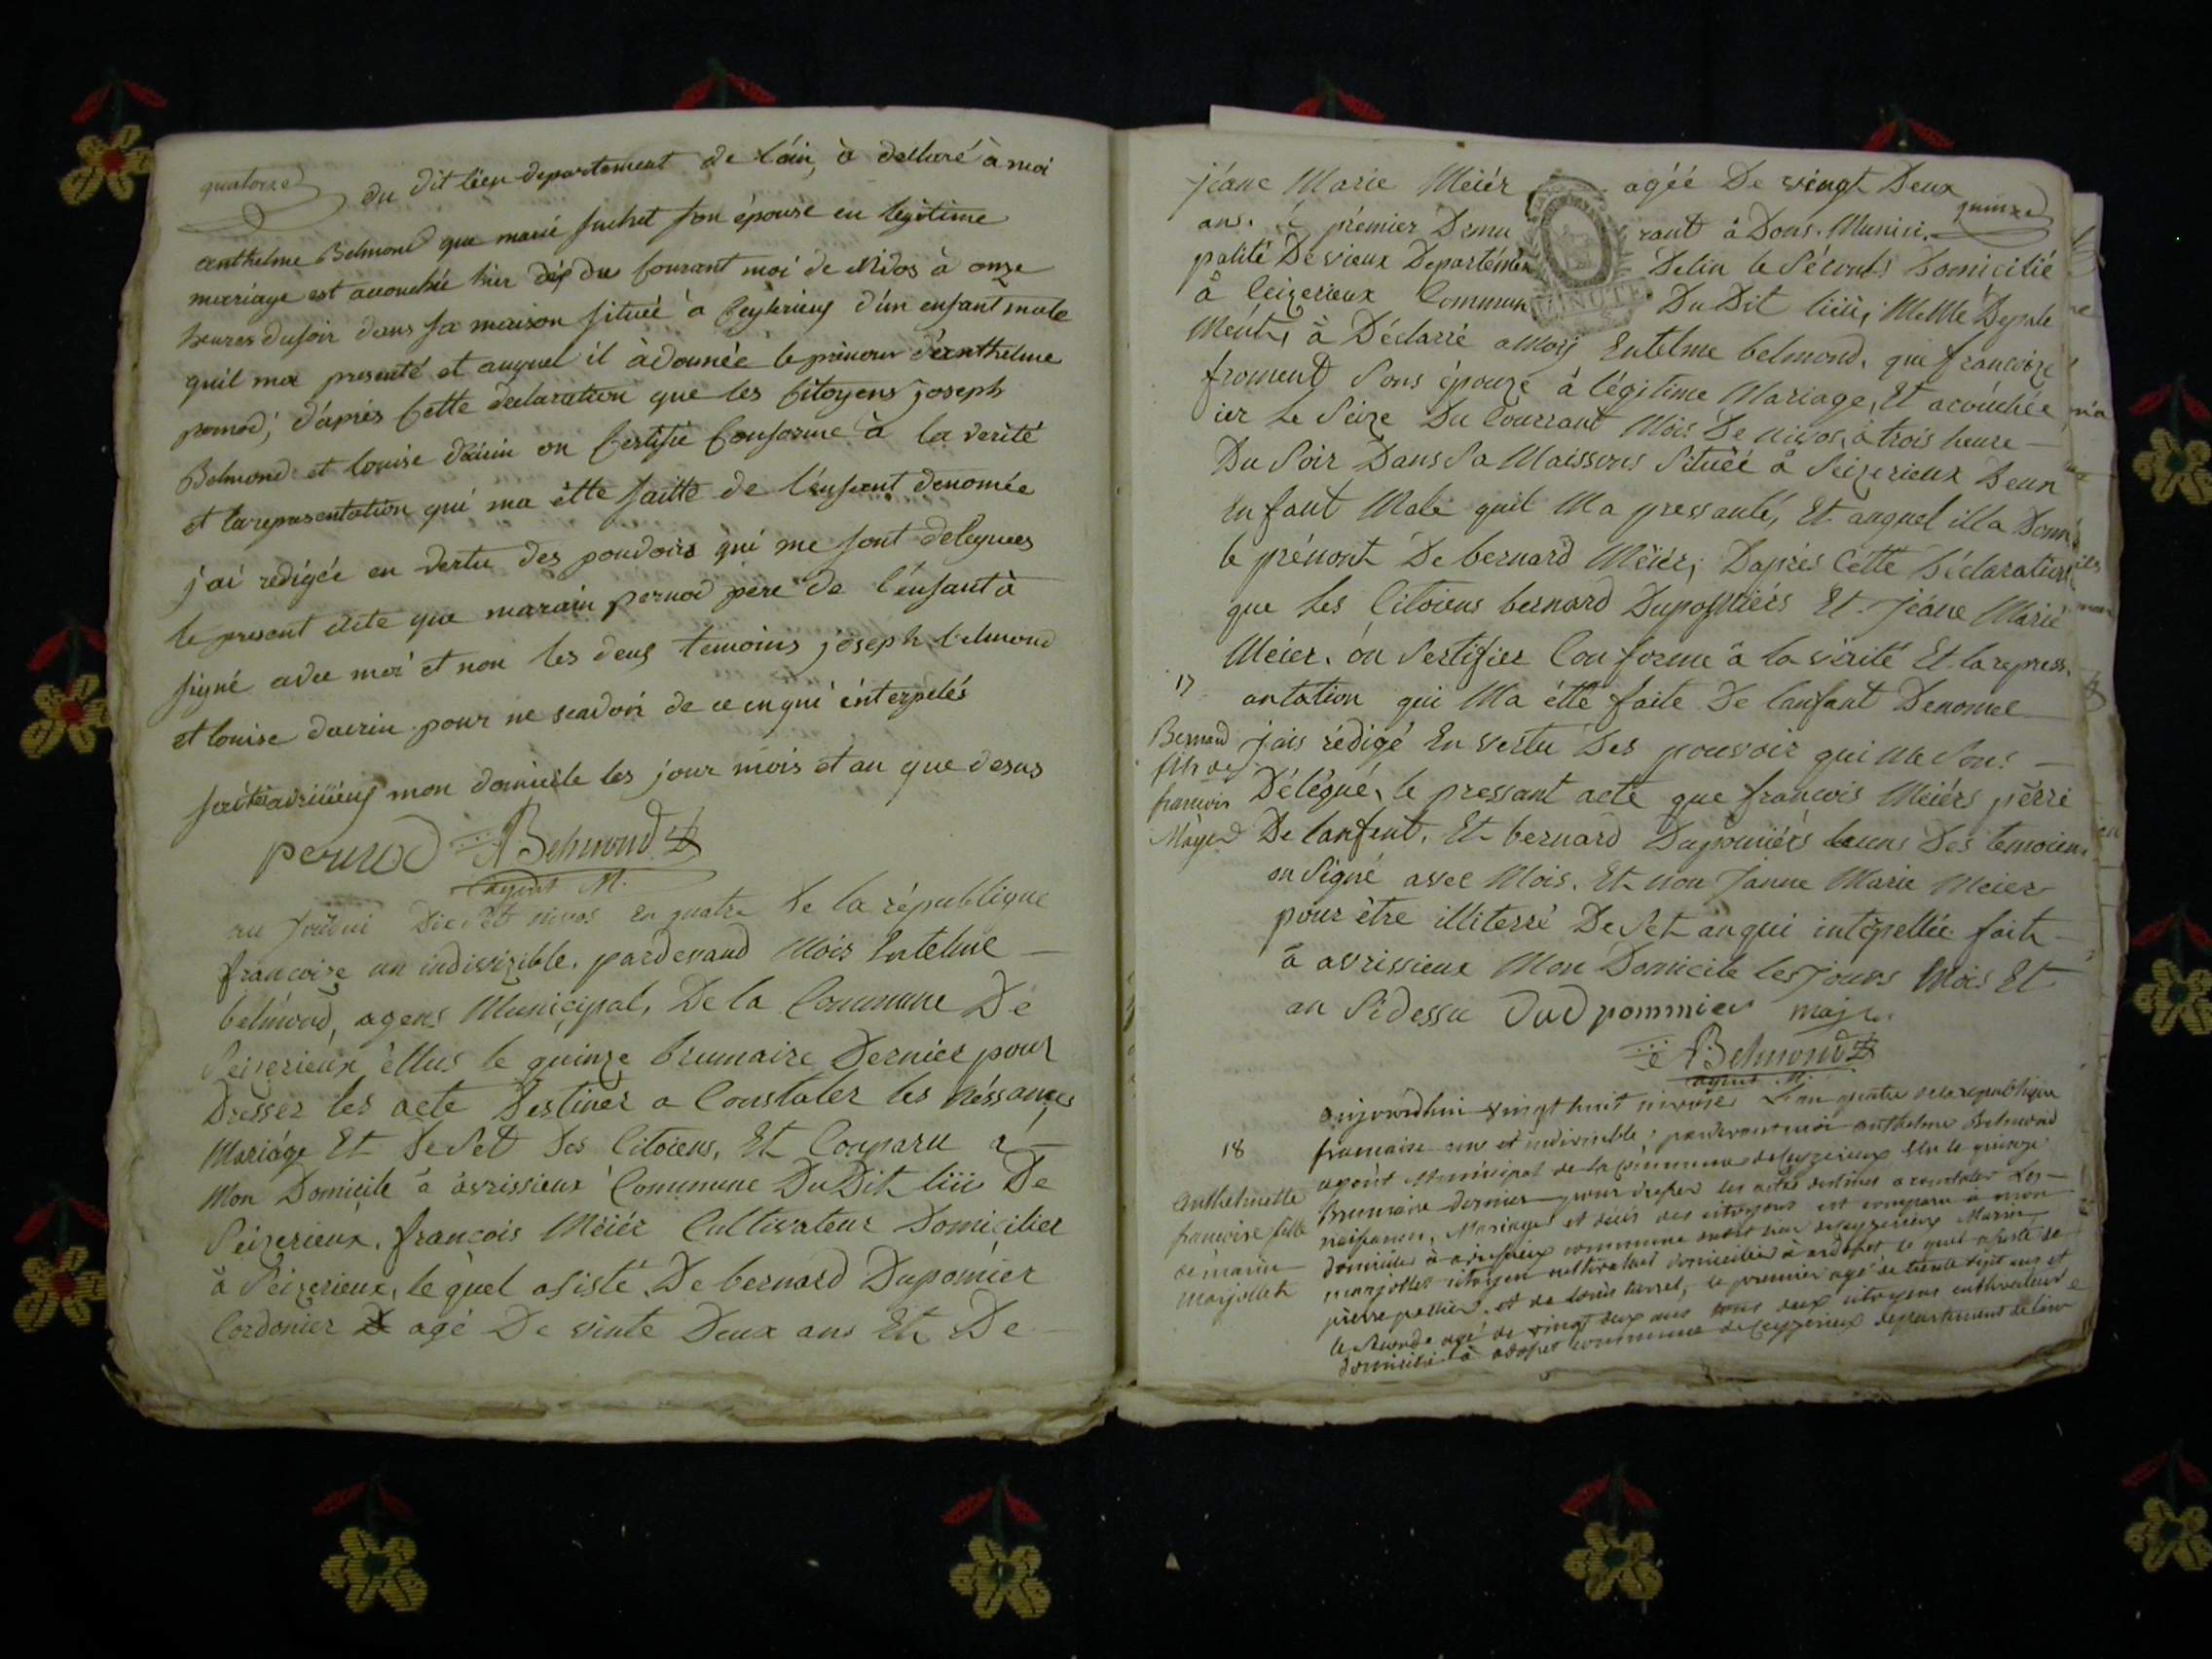 quatorze
du dit lieu departement de l'ain, à declaré à moi
anthelme Belmond que marie suchet son épouse en legitime
mariage est acouchée hier dix du courant moi de Nivos à onze
heures du soir dans sa maison située à Ceyzerieux d'un enfant male
quil ma presenté et auquel il à donnée le prenom d'anthelme
pernod; d'après cette declaration que les citoyens joseph
Belmond et louise on certifié conforme à la verité
et la representation qui ma étte faitte de l'enfant denomée
j'ai redigée en vertu des poudoirs qui me sont deleguees
le present acte que marain pernod père de l'enfant à
signé avec moi et non les deux temoins joseph belmond
et louise pour ne scavoir de ce enqui interpelés
fait mon domicile les jour mois et an que desus
pernod ABelmond
agent M.
au jourdui Diceset nivos en quatre de la république
francoize un indivizible. pardevand Mois Entelme
belmond, agens Municipal, De la Commune De
Seizerieux éllus le quinze brumaire Dernier pour
Dresser les acte Destiner a Constater les Néssances
Mariage Et Deset Des Citoiens, Et Comparu à
Mon Domicile à avrissieux Commune Du Dit liii De
Seizerieux, francois Méiér Cultivateur Domicilier
à Seizerieux, le quel asisté De bernard Dupomier
Cordonier agé De vinte Deux ans Et De
jéane Marie Méiér agéé De vingt Deux
quinze
ans. le prémier Demu rant à Dons. Munici.
palité De vieux Departémen Delin le Second Domicilié
à Ceizerieux Commun Du Dit liiii, MeMe Depte
MINUTE
Méut, à Déclarré amoij Entelme belmond, que francoize
froment Sons épouze à légitime Mariage, Et acouchée
ier le Seize Du Courrant Mois De nivos, à trois heure
Du Soir Dans Sa Maissons Situéé à Seizerieux Deun
Enfant Male quil Ma pressanté, Et auquel illa Donné
le prénont De bernard Méiér; Daprés Cétte Déclaration
que les Citoiens bernard Dupommiérs Et Jéane Marie
Méier. on Sertifier Conforme à la vérité Et la repress.
17
antation qui Ma étté faite De lanfant Denomé
Bernard
fils de
francois
Mayer
jais rédigé En vertu Des pouvoir qui Me Sons
Délégué, le pressant acte que francois Méiérs pérre
De lanfent. Et bernard Dupomiérs leuns Des temoiens
on Signé avec Mois. Et non Janne Marie Meier
pour étre illiterré De Set anqui intépellée fait
à avrissieux Mon Domicile les Jours Mois Et
an Sidessu Dudpommier
ABelmond
agent M.
aujourdhui vingt huit nivose Lan quatre de la republique
18
francaise une et indivisible; pardevant moi anthelme Belmond
agent Municipal de la commune de Ceyzerieux Elu le quinze
Anthelmette
francoise fille
de marin
Marjollet
brumaire dernier pour dresser les actes destinés a constater Les
naissances, Mariages et décés des citoyens est comparu a mon
domicile à commune dudit lieu de Ceyzerieux Marin
marjollet citoyen cultivateur domicilié à ardosset, le quel assisté de
pierre et de louis, le premier agé de trente sept ans et
le second agé de vingt deux ans tous deux citoyens cultivateurs
domicilié à commune de Ceyzerieux departement de lain